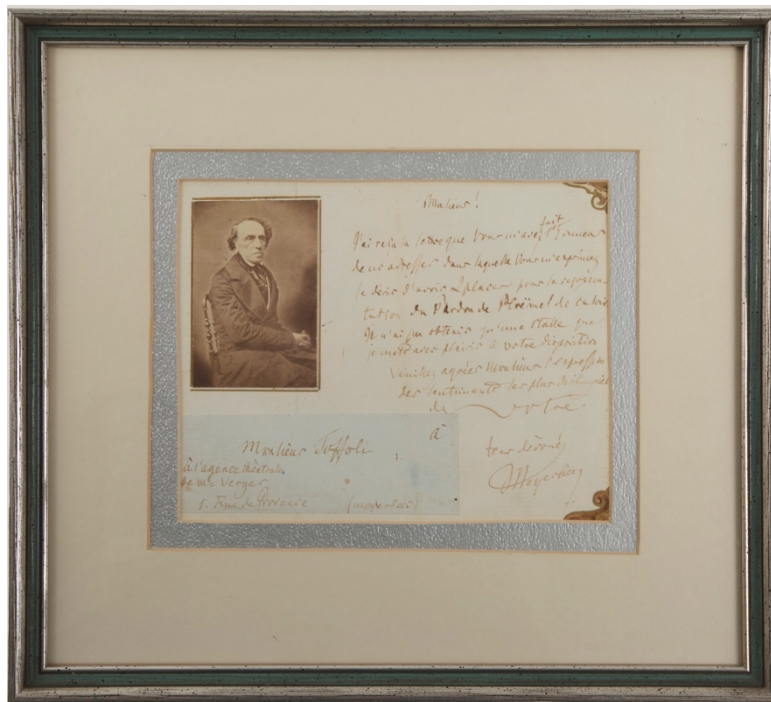 Monsieur!
J'ai reçu la lettre que vous m'avez fait l'honneur
de m'adresser dans laquelle vous m'exprimez
le désir d'avoir places pour la représen-
tation du Pardon de Ploërmel de
Je n'ai pu obtenir qu'une stalle que
je mets avec plaisir à votre disposition
Veuillez agréer Monsieur l'expression
des sentiments les plus distingués
de votre
tout dévoué
Meyerbeer
Monsieur Toffoli
à l'agence théatrale
de Mr Verger
1. Rue de Provence (Meyerbeer)
à